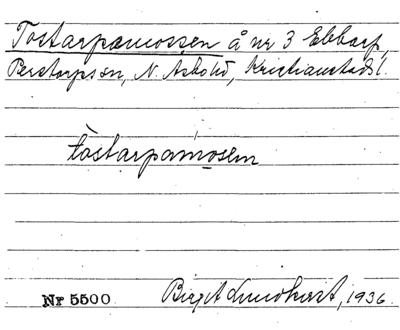 Tostarpamossen å nr 3 Ebbarp,
Perstorps sn, N. Åsbohd, Kristianstads l.
tòstarpamósen
Nr 5500 Birgit Lundkvist, 1936.